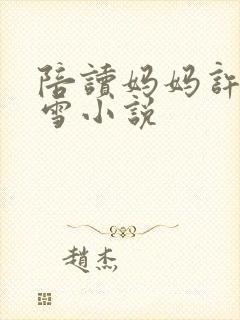 陪讀妈妈許
雪小説
趙杰